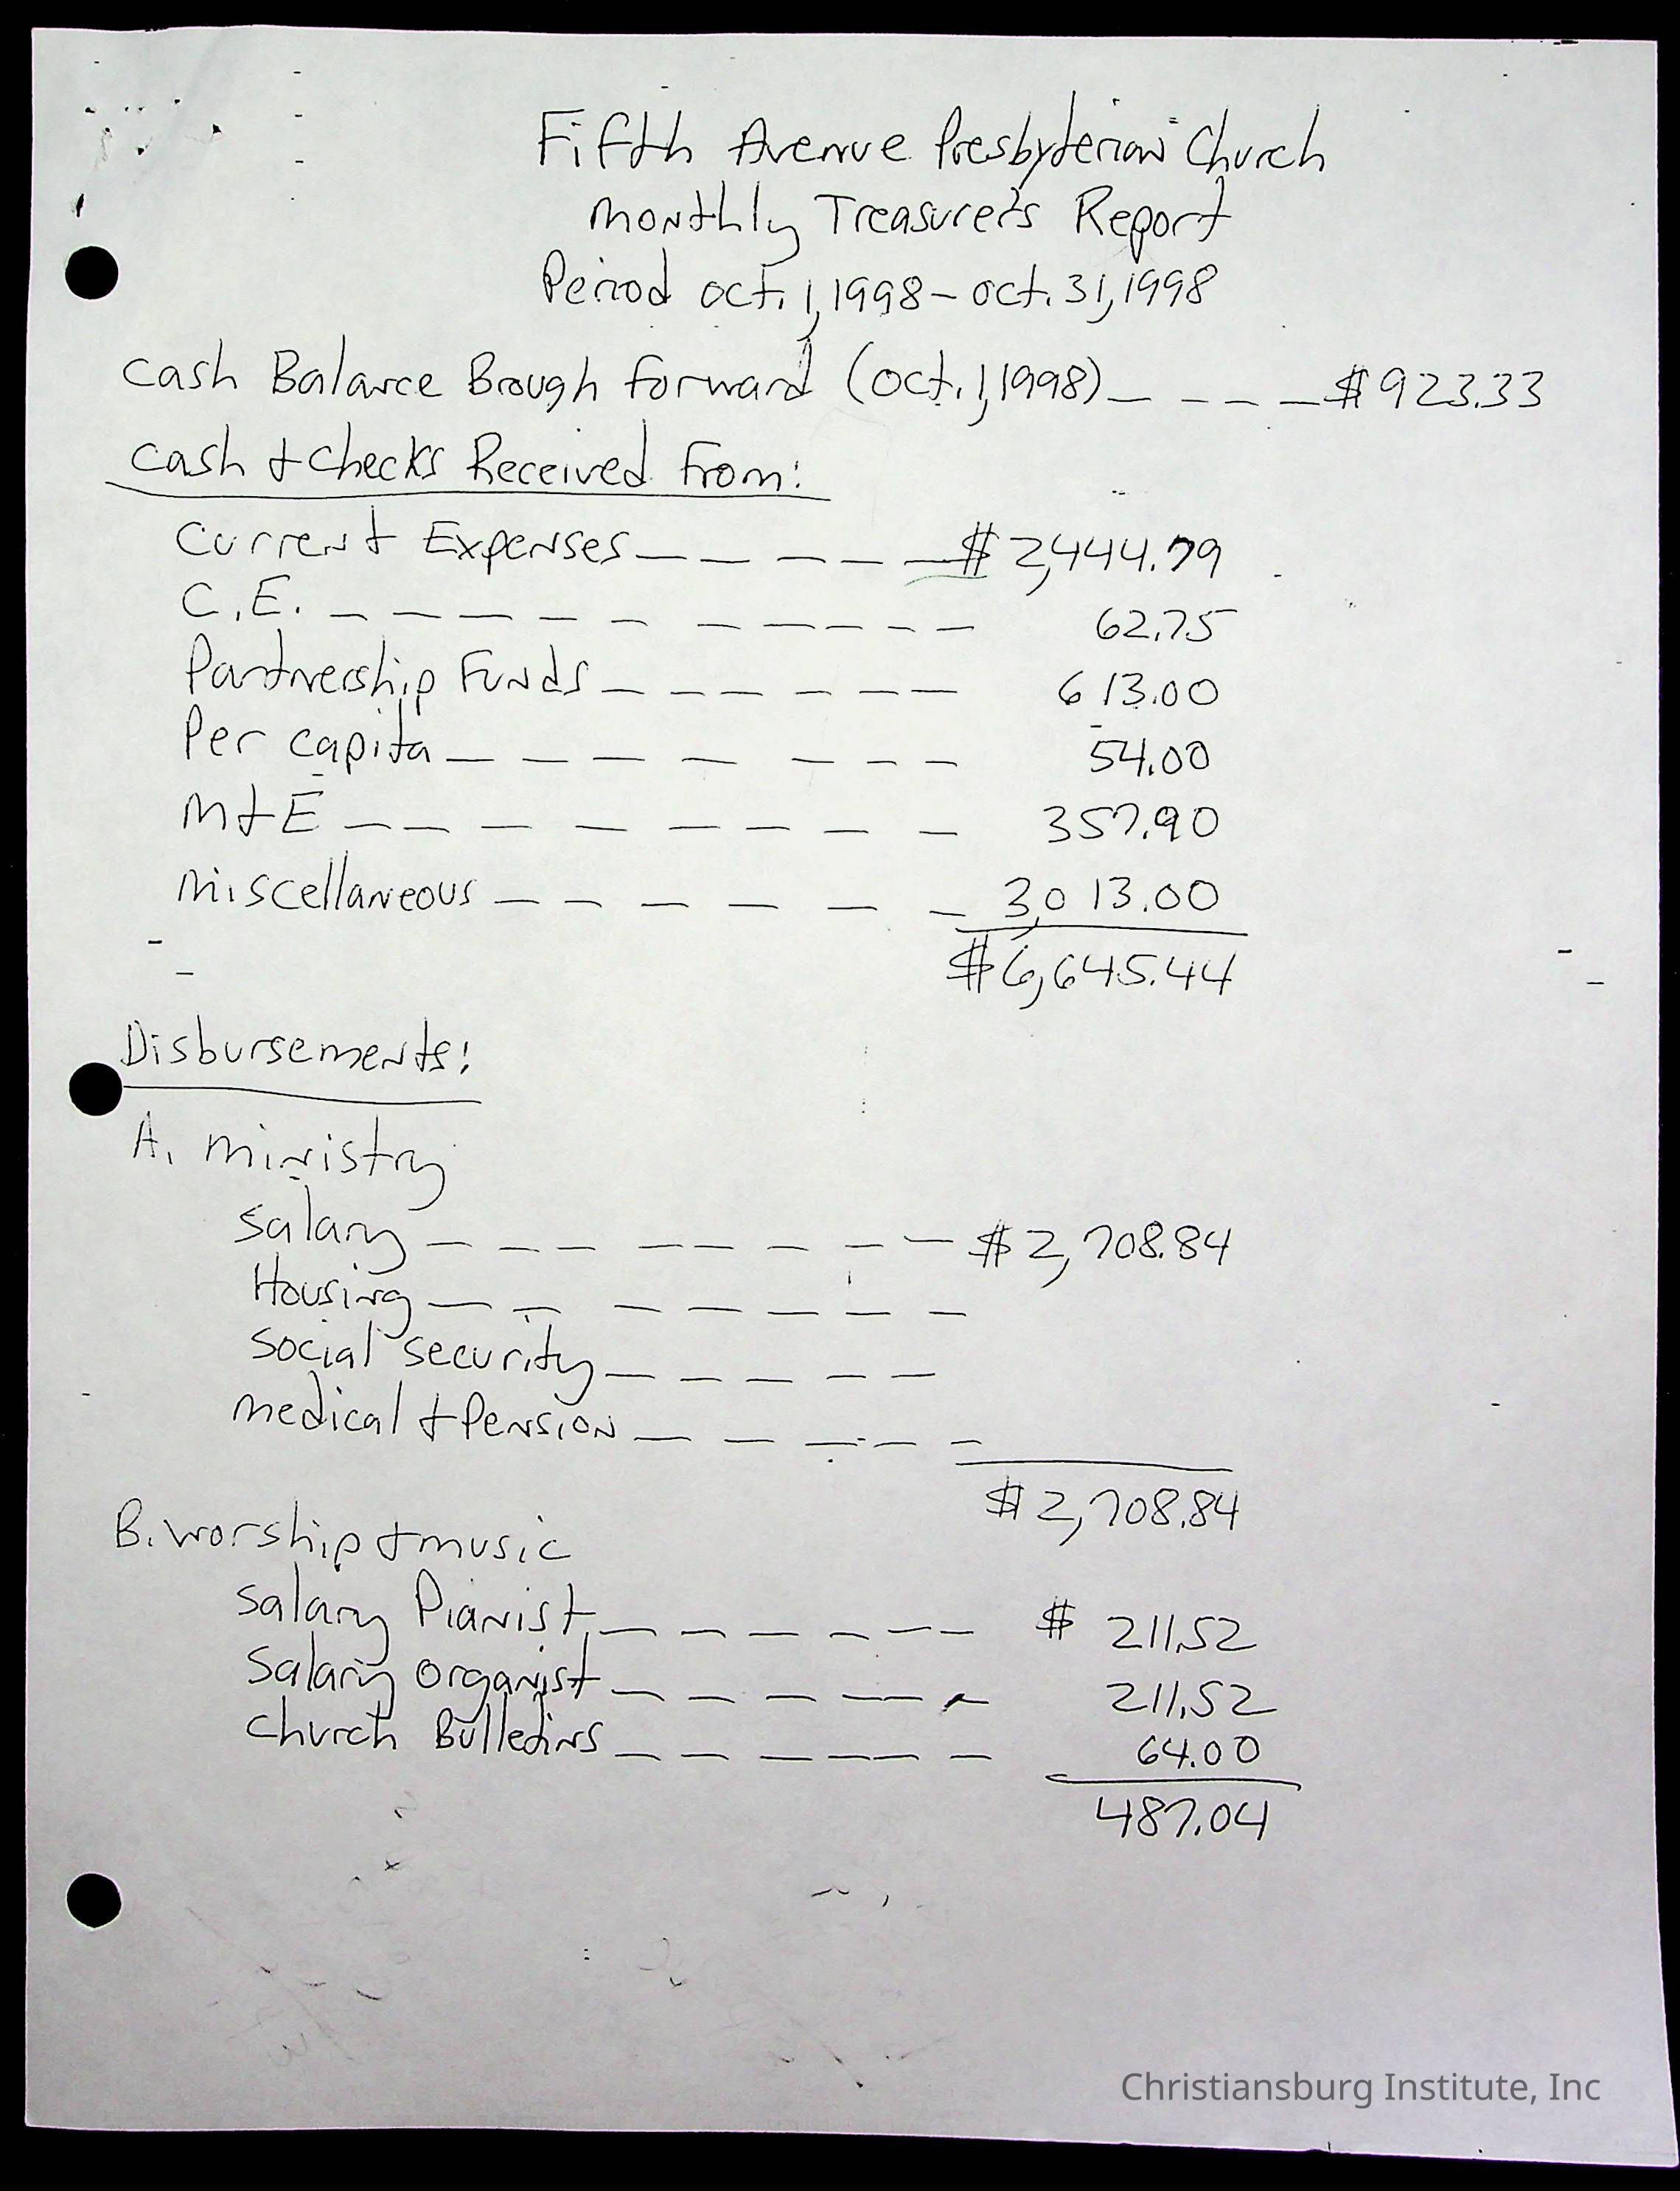 Fifth Avenue Presbyterian Church
Monthly Treasurer's Report
Period Oct. 1, 1998 – Oct. 31, 1998
Cash Balance Brough forward (Oct. 1, 1998) _ _ _ _ $923.33
Cash + Checks Received From:
Current Expenses _ _ _ _ _ $2,444.79
C.E. _ _ _ _ _ _ _ _ _ _ 62.75
Partnership Funds _ _ _ _ _ _ 613.00
Per capita _ _ _ _ _ _ _ 54.00
M+E _ _ _ _ _ _ _ _ 357.90
Miscellaneous _ _ _ _ _ _ 3,013.00
$6,645.44
Disbursements:
A. Ministry
Salary _ _ _ _ _ _ _ _ $2,708.84
Housing _ _ _ _ _ _ _
Social Security _ _ _ _ _
Medical + Pension _ _ _ _ _
$2,708.84
B. Worship + Music
Salary Pianist _ _ _ _ _ _ $ 211.52
Salary Organist _ _ _ _ _ 211.52
Church Bulletins _ _ _ _ _ _ 64.00
487.04
Christiansburg Institute, Inc